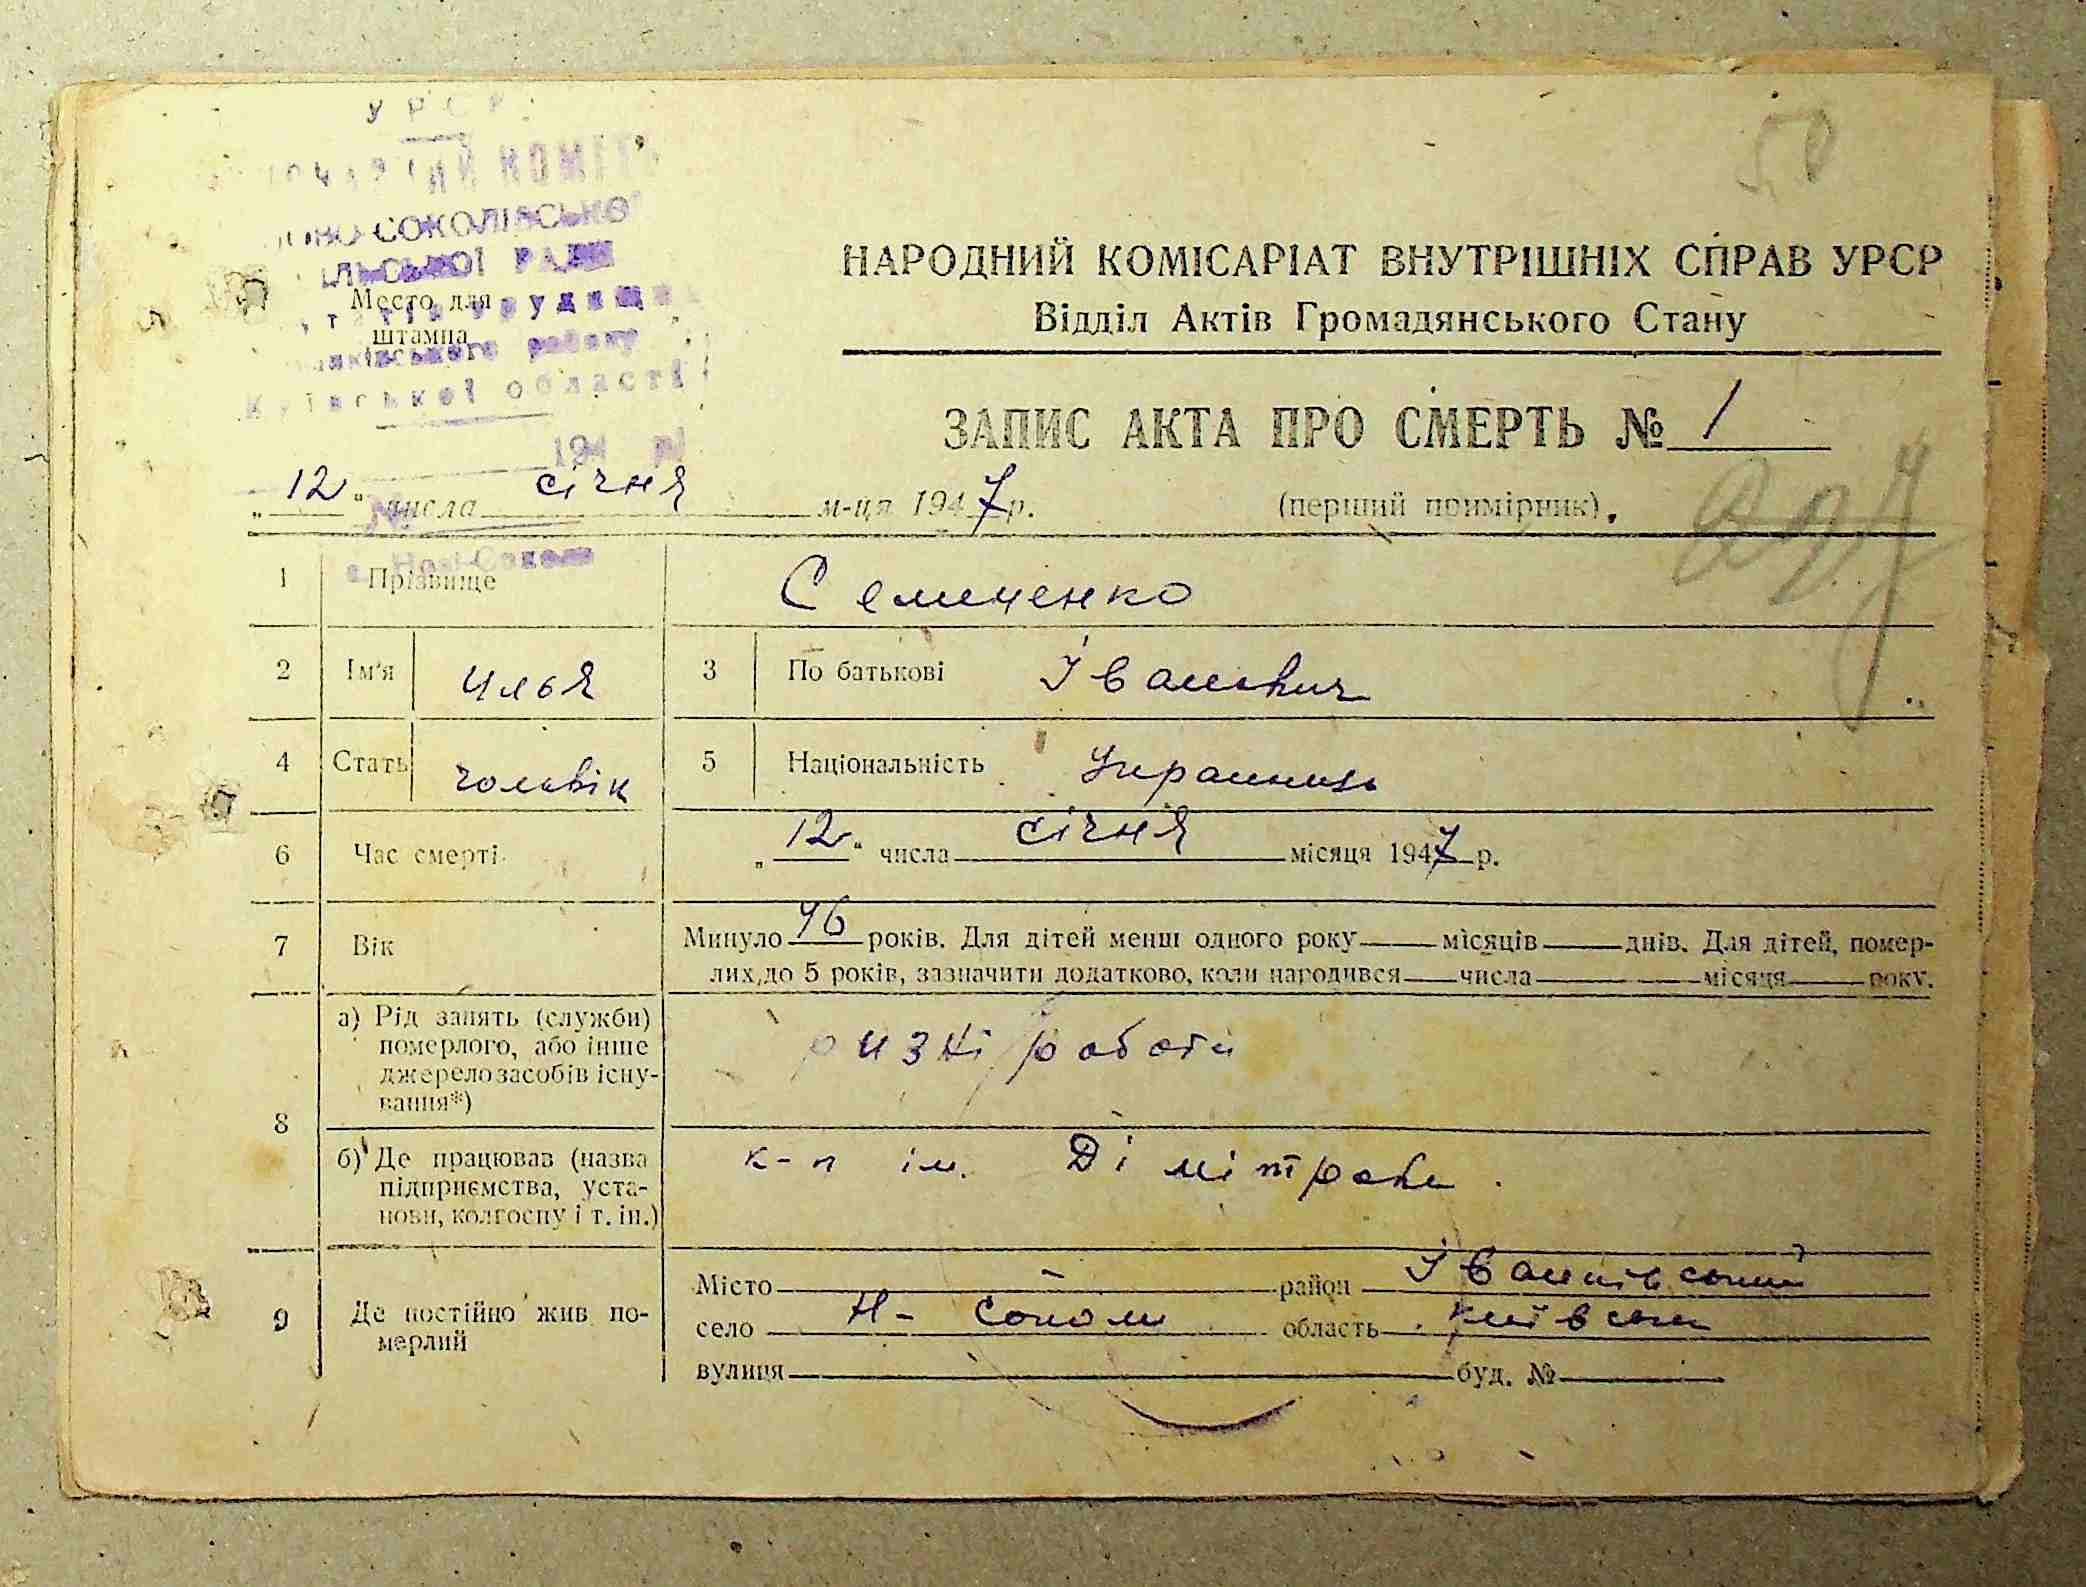 УРСР
СОКОЛІВСЬКО
РАДИ
Место для
штампа
району
Київської області
194 р
НАРОДНИЙ КОМІСАРІАТ ВНУТРІШНІХ СПРАВ УРСР
Відділ Актів Громадянського Стану
ЗАПИС АКТА ПРО СМЕРТЬ № 1
„12“ числа січня м-ця 1947 р.
(перший примірник).
1 Прізвище Семиченко
2 Ім'я Илья 3 По батькові Іванович
4 Стать чоловік 5 Національність Украинец
6 Час смерті „12“ числа січня місяця 1947 р.
7 Вік Минуло 46 років. Для дітей менш одного року — місяців — днів. Для дітей, помер-
лих до 5 років, зазначити додатково, коли народився — числа — місяця — року.
8 а) Рід занять (служби)
померлого, або інше
джерело засобів існу-
вання*)
ризні роботи
б) Де працював (назва
підприємства, уста-
нови, колгоспу і т. ін.)
к-п ім. Дімітрова
9 Де постійно жив по-
мерлий
Місто — район Іванківський
село Н-Соколи область київська
вулиця буд. №
50